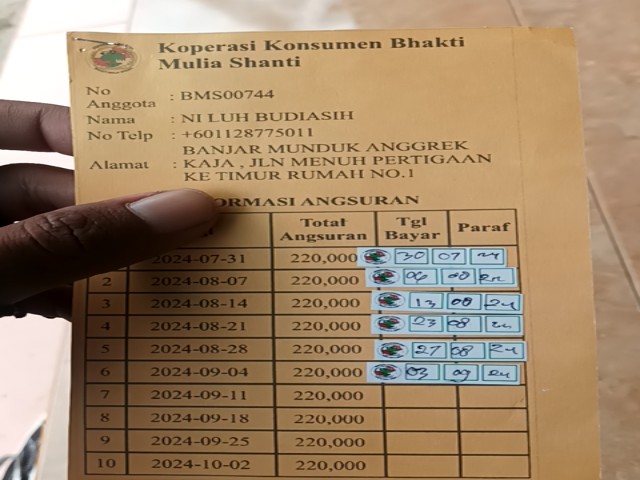 Koperasi Konsumen Bhakti
Mulia Shanti
No
Anggota : BMS00744
Nama : NI LUH BUDIASIH
No Telp : +601128775011
BANJAR MUNDUK ANGGREK
Alamat : KAJA , JLN MENUH PERTIGAAN
KE TIMUR RUMAH NO.1
ORMASI ANGSURAN
Total Angsuran Tgl Bayar Paraf
2024-07-31 220,000 30 07 24
2 2024-08-07 220,000 06 08 24
3 2024-08-14 220,000 13 08 24
4 2024-08-21 220,000 23 08 24
5 2024-08-28 220,000 27 08 24
6 2024-09-04 220,000 03 09 24
7 2024-09-11 220,000
8 2024-09-18 220,000
9 2024-09-25 220,000
10 2024-10-02 220,000